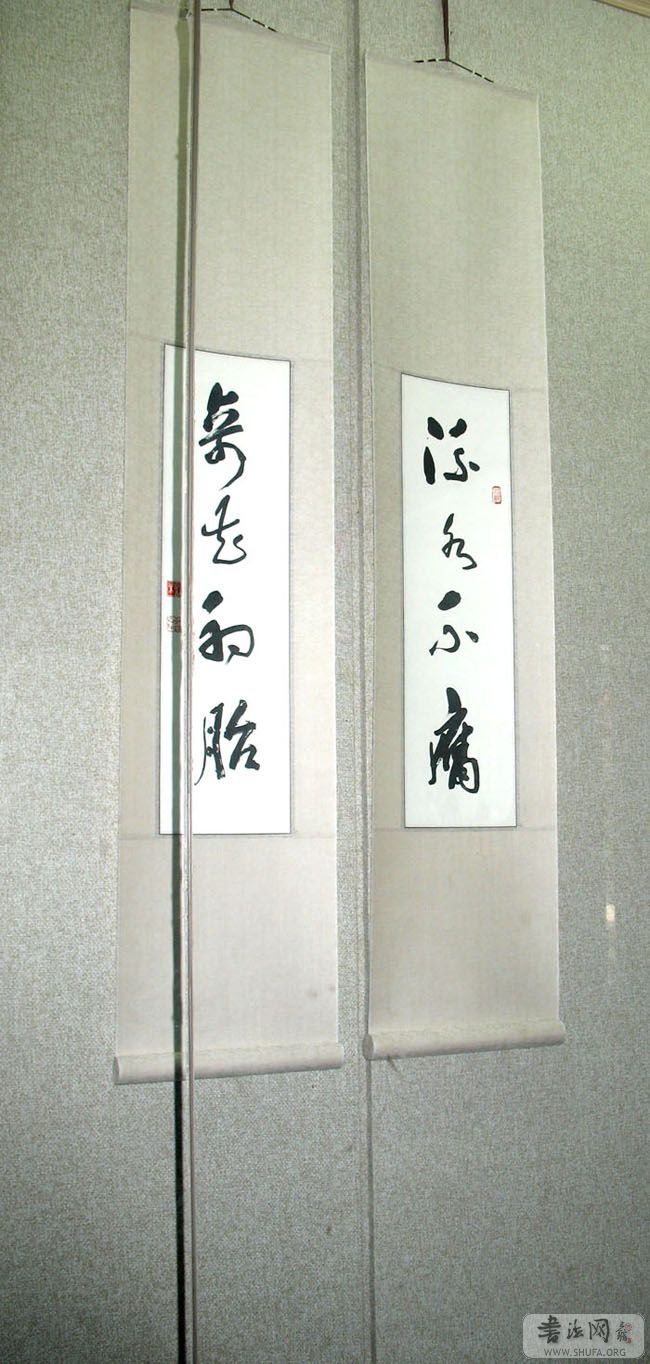 流水不腐
奇花初胎
書法网
WWW.SHUFA.ORG